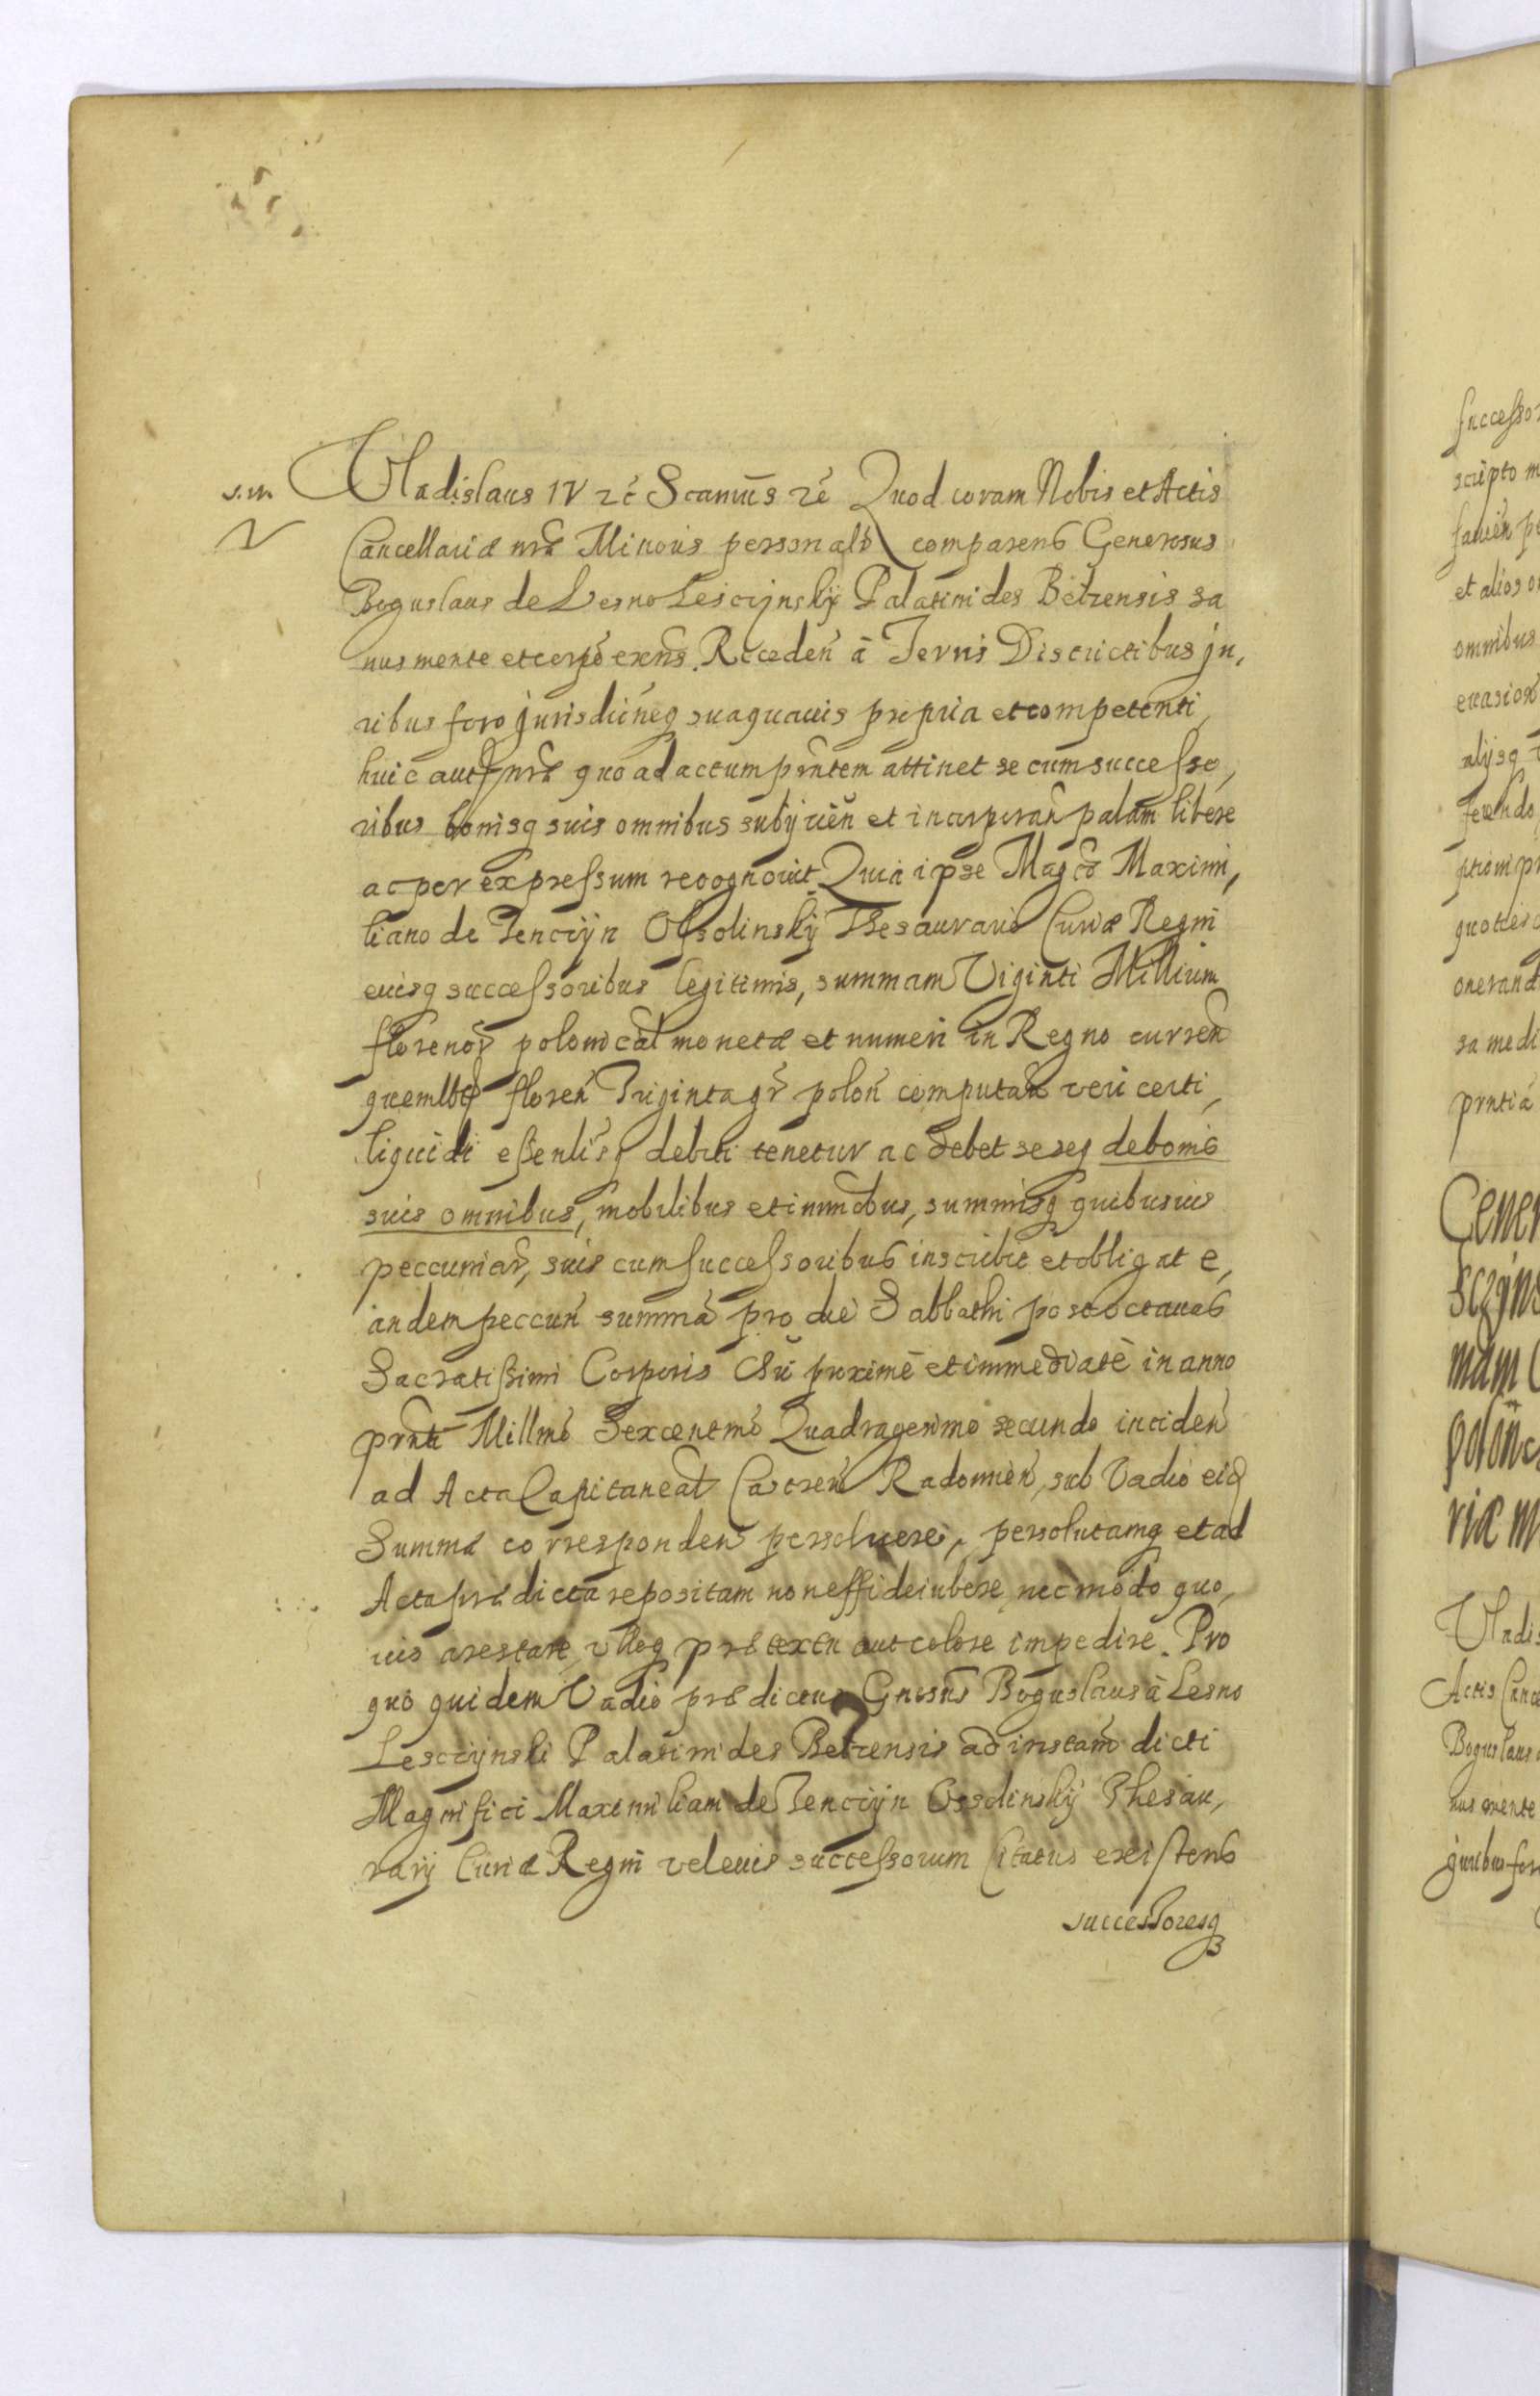 s.m. Vladislaus IV etc̄ Scāmus etc̄ Quod coram Nobis et Actis
Cancellariæ nr̄æ Minoris personalr̄ comparens Generosus
Boguslaus de Lesno Lesczÿnskÿ Palatinides Belzensis sa
nus mente et corpē exñs. Receden̄ à Terris Districtibus ju,
ribus foro jurisdicñeq suaquavis propria et competenti
huic aut nræ quo ad actum pñtem attinet se cum successo,
ribus bonisq suis omnibus subÿcien̄ et incorporan̄ palam libere
ac per expressum recognovit Quia ipse Magco Maximi,
liano de Tenczÿn Ossolinskÿ Thesaurario Curiæ Regni
eiusq successoribus legitimis, summam Viginti Millium
florenor̄ polonical monetæ et numeri in Regno curren̄
quemlbt floren̄ Triginta gr̄ polon̄ computan̄ veri certi,
liquidi essenlisq debiti tenetur ac debet seseq de bonis
suis omnibus, mobilibus et immobus, summisq quibusvis
peccuniar̄, suis cum successoribus inscribit et obligat e,
andem peccun̄ summā pro die Sabbathi post octavas
Sacratissimi Corporis Chrī proximè et immediatè in anno
prn̄ti Millmō Sexcentmō Quadragesimo secundo inciden̄
ad Acta Capitaneal Castren̄ Radomien̄, sub Vadio eid
Summæ corresponden̄ persolvere, persolutamq et ad
Acta prædicta repositam non effideiubere, nec modo quo,
vis arestare, ulloq prætextu aut colore impedire. Pro
quo quidem Vadio prædictus Gnosus Boguslaus à Lesno
Lesczÿnski Palatinides Belzensis ad instam̄ dicti
Magnifici Maximiliani de Tenczÿn Ossolinskÿ Thesau,
rarÿ Curiæ Regni vel eius successorum Citatus existens
successoresq

successo
scripto m
et alios o
omnibus
evasion
alÿsq
ferendo
quoties
onerand
sa medi
prntiā
Gener
Sczÿns
mam
polon
riæ m
Vladis
Actis Cance
Boguslaus
nus mente
juribus for